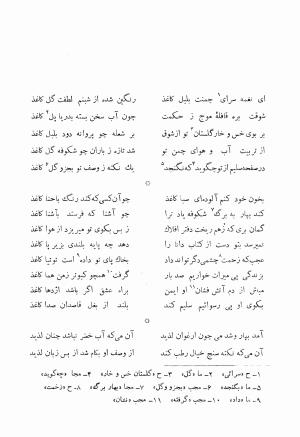 ای نغمه سرای¹ چمنت بلبل کاغذ رنگین شده از شبنم لطفت گل کاغذ
شوقت بره قافلهٔ موج ز حکمت چون آب سخن بسته بدریا پل² کاغذ
بر بوی خس و خار گلستان³ تو از شوق بر شعله چو پروانه دود بلبل کاغذ
از تربیت آب و هوای چمن تو شد تازه ز باران چو شکوفه گل کاغذ
در صفحه سلیم از تو چگوید⁴ که نگنجد⁵ یك نکته ز وصف تو بجزو گل⁶ کاغذ
بخون خود کنم آلوده‌ای صبا کاغذ چو آن کسی که کند رنگ با حنا کاغذ
کند بهار به برگ⁷ شکوفه یاد ترا چو آشنا که فرستد بآشنا کاغذ
گمان بری که زهم ریخت دفتر افلاك ز بس بکوی تو میریزد از هوا کاغذ
نمیرسد بتو دست از کتاب دانا را دهد چه پایه بلندی بزیر پا کاغذ
عجب که زحمت⁸ چشمی دگر تواند داد بخاك پای تو داده⁹ است توتیا کاغذ
بزندگی پی میراث خواریم صد بار گرفت¹⁰ همچو کبوتر زمن هما کاغذ
مباش از دم آتش فشان¹¹ او ایمن براه عشق اگر باشد اژدها کاغذ
بکوی او پی رسوائیم سلیم کند بلند از بغل قاصدان صدا کاغذ
آمد بهار وشد می چون ارغوان لذیذ آن می که آب خضر نباشد چنان لذیذ
آن می که نکته سنج خیال رطب کند از وصف او بنام شد از بس زبان لذیذ
۱ـ ح «سرائی» ۲ـ ما «گل» ۳ـ ح «گلستان خس و خار» ۴ـ مجا «چه‌گوید»
۵ـ ما «بگنجد» ۶ـ مجب «بجزو وگل» ۷ـ مجا «بهار برگه» ۸ـ ح «زخمت»
۹ـ ما «داد» ۱۰ـ مجب «گرفته» ۱۱ـ مجب «نشان»